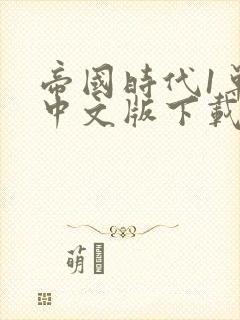 帝國時代1單
中文版下載
萌